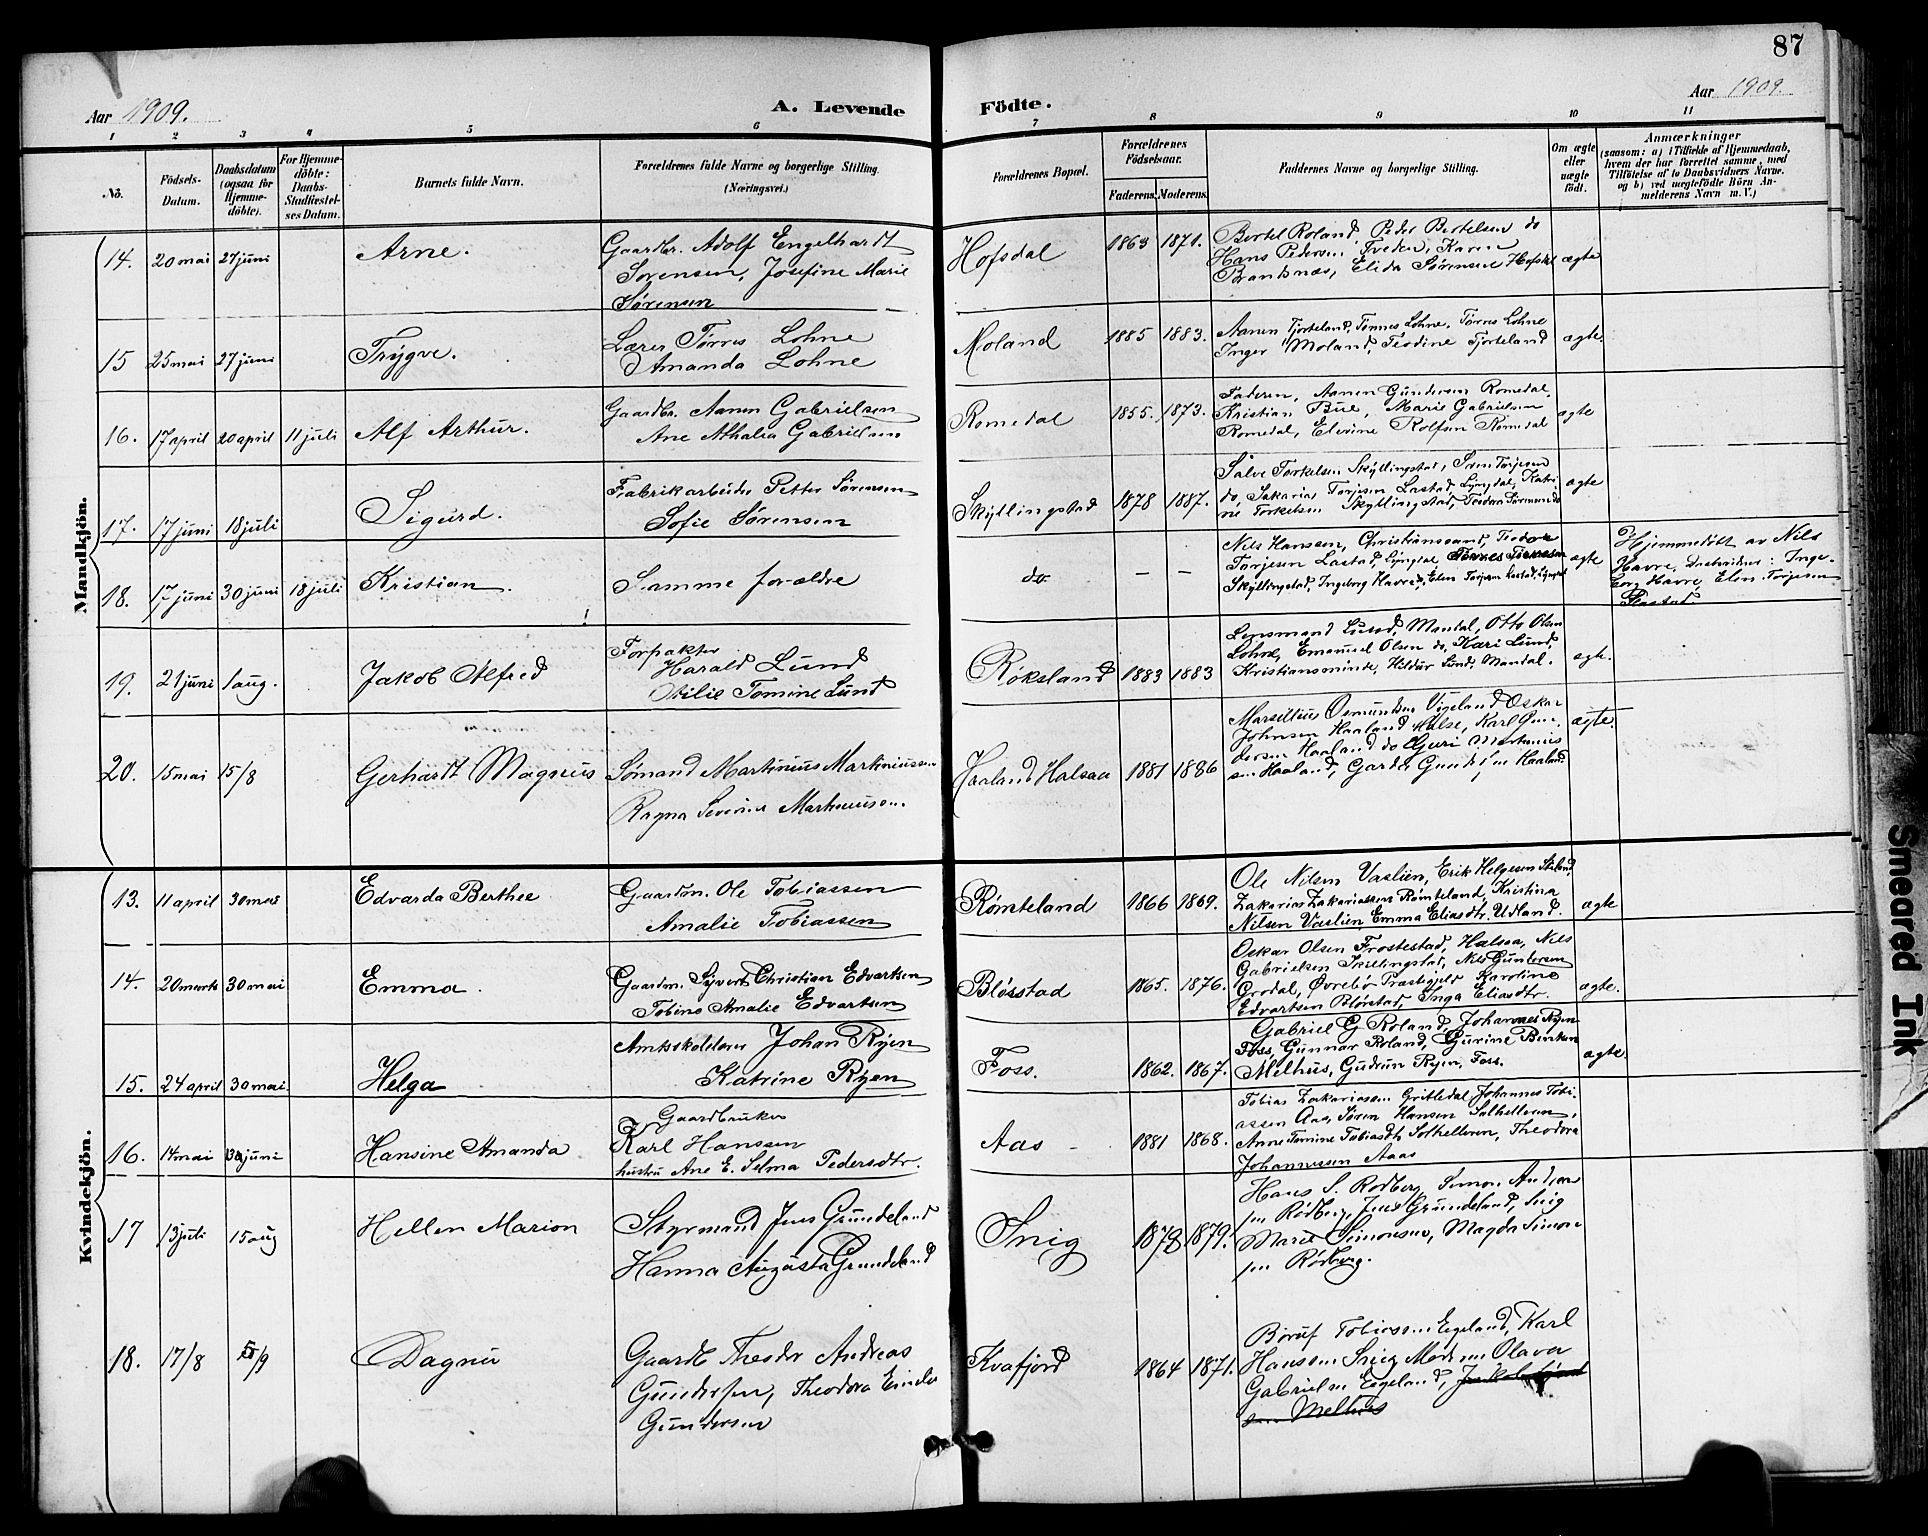 87
Aar 1909.
A. Levende Födte.
Aar 1909.
1 2 3 4 5 6 7 8 9 10 11
No.
Födsels-
Datum.
Daabsdatum
(ogsaa for
Hjemme-
döbte).
For Hjemme-
döbte:
Daabs-
Stadfæstel-
ses Datum.
Barnets fulde Navn.
Forældrenes fulde Navne og borgerlige Stilling.
(Næringsvei.)
Forældrenes Bopæl.
Forældrenes
Födselsaar.
Faderens. Moderens.
Faddernes Navne og borgerlige Stilling.
Om ægte
eller
uægte
födt.
Anmærkninger
(saasom: a) i Tilfælde af Hjemmedaab,
hvem der har forrettet samme, med
Tilföielse af to Daabsvidners Navne,
og b) ved uægtefödte Börn An-
melderens Navn m. V.)
Mandkjön.
14. 20 mai 27 juni Arne. Gaardbr. Adolf Engelhardt
Sørensen, Josefine Marie
Sørensen
Hofsdal 1863 1871. Bertel Roland, Peder Bertelsen do
Hans Pedersen Tveden, Karen
Brandsnæs, Elida Sørensen ægte
15 25 mai 27 juni Trygve. Lærer Tørres Lohne
Amanda Lohne
Moland 1885 1883. Aanen Tjorteland, Tønnes Lohne, Tørres Lohne
Inger Moland, Teodine Tjorteland ægte.
16. 17 april 20 april 11 juli Alf Arthur. Gaardbr. Aanen Gabrielsen
Ane Athalia Gabrielsen
Romedal 1855. 1873. Faderen, Aanen Gundersen Romedal,
Kristian Bue, Marie Gabrielsen
Romedal, Elevine Rolfsen Romedal ægte
17. 17 juni 18 juli Sigurd. Fabrikarbeider Petter Sørensen
Sofie Sørensen
Skyllingstad 1878 1887. Salve Torkelsen Skyllingstad, Sven Torjesen
do, Sakarias Torjesen Lastad, Lyngdal, Katri-
ne Torkelsen Skyllingstad, Teodora Sørensen do ægte
18. 17 juni 30 juni 18 juli Kristian. Samme forældre
do — — Nils Hanssen, Christianssand, Teodor
Torjesen Lastad, Lyngdal
Skyllingstad, Ingeborg Havre, Elen Torjesen Lastad, Lyngdal ægte
Hjemmedøbt av Nils
Havre, Daabsvidner: Inge-
borg Havre, Elen Torjesen
Lastad.
19. 21 juni 1 aug. Jakob Alfred Forpakter
Harald Lund
Otilie Tomine Lund
Røksland 1883 1883 Lensmand Lund, Mandal, Otto Olsen
Lohne, Emanuel Olsen do, Kari Lund,
Kristiansminde, Hildur Lund, Mandal. ægte.
20. 15 mai 15/8 Gerhardt Magnus Sømand Martinius Martiniussen
Ragna Severine Martiniussen.
Haaland Halsaa 1881 1886 Osmundsen Vigeland Oskar
Johnsen Haaland Halse, Karl Gun-
dersen Haaland do Guri Martinius
sen Haaland, Garda Gundersen Haaland ægte.
Kvindekjön.
13. 11 april 30 mai Edvarda Berthee Gaardm. Ole Tobiassen
Amalie Tobiassen
Rømteland 1866 1869. Ole Nilsen Vaslien, Erik Helgesen
Zakarias Zakariassen Rømteland, Kristina
Nilsen Vaslien, Emma Eliasdtr. Udland. ægte
14. 20 marts 30 mai Emma. Gaardm. Syvert Christian Edvartsen
Tobine Amalie Edvartsen
Bløsstad 1865. 1876. Oskar Olsen Frostestad, Halsaa, Nils
Gabrielsen Skillingstad, Nils Gundersen
Grodal, Øvrebø Præstegjeld Karoline
Edvartsen Bløsstad, Inga Eliasdtr. ægte.
15. 24 april 30 mai. Helga Amtsskolelærer Johan Ryen
Katrine Ryen
Foss. 1862. 1867. Gabriel G Roland, Johannes Ryen
Foss, Gunnar Roland, Gurine Bentsen
Melhus, Gudrun Ryen, Foss. ægte.
16. 14 mai juni Hansine Amanda Gaardbruker
Karl Hanssen
hustru Ane E. Selma Pedersdtr.
Aas 1881 1868. Tobias Zakariassen Gritledal, Johannes Tobi-
assen Aas, Søren Hansen Solhelleren,
Anne Tomine Tobiasdtr Solhelleren, Theodora
Johannessen Aaas
17 13 juli 15 aug Hellen Marion Styrmand Jens Grundeland
Hanna Augusta Grundeland
Snig 1878 1879. Hans S. Rødberg, Simon Andrea
sen Rødberg, Jens Grundeland, Snig
Marie Simonsen, Magda Simon-
sen Rødberg.
18. 17/8 /9 Dagny Gaardb Theodor Andreas
Gundersen, Theodora Emilie
Gundersen
Kvafjord 1864 1871. Børuf Tobiassen Eigeland, Karl
Hanssen Snig Moderen Olava
Gabrielsen Eigeland,
Melhus
Smeared Ink